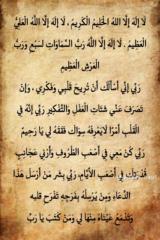 لَا إِلَهَ إِلَّا اللهُ الحَلِيمُ الْكَرِيمُ ، لَا إِلَهَ إِلَّا اللهُ العَلِيُّ
العَظِيمُ . لَا إِلَهَ إِلَّا اللهُ رَبُّ السَّمَاوَاتِ السَبْعِ وَرَبُّ
العَرْشِ العَظِيمِ
رَبِّي إِنِّي أَسْأَلُكَ أَنْ تُرِيحَ قَلْبِي وَفِكْرِي . وَإِنْ
تَصْرِفَ عَنِّي شَتَاتَ العَقْلِ وَالتَّفْكِيرِ رَبِّي إِنَّهُ فِي
القَلْبِ أُمُوراً لَايَعْرِفُهَا سِوَاكَ فَحَقِّقْهَا لِي يَا رَحِيمُ
رَبِّي كُنْ مَعِي فِي أَصْعَبِ الظُّرُوفِ وَأَرِنِي عَجَائِبَ
قُدْرَتِكَ فِي أَصْعَبِ الأَيَّامِ، رَبِّي بَشِّرْ مَنْ أَرْسَلَ هَذَا
الدُّعَاءَ وَمَنْ يُرْسِلُهُ بِفَرْحِهِ تَفْرَحُ قَلْبِهِ
وَتَدْمَعُ عَيْنَاهُ مِنْهَا لِي وَمَنْ كَتَبَ يَا رَبُّ